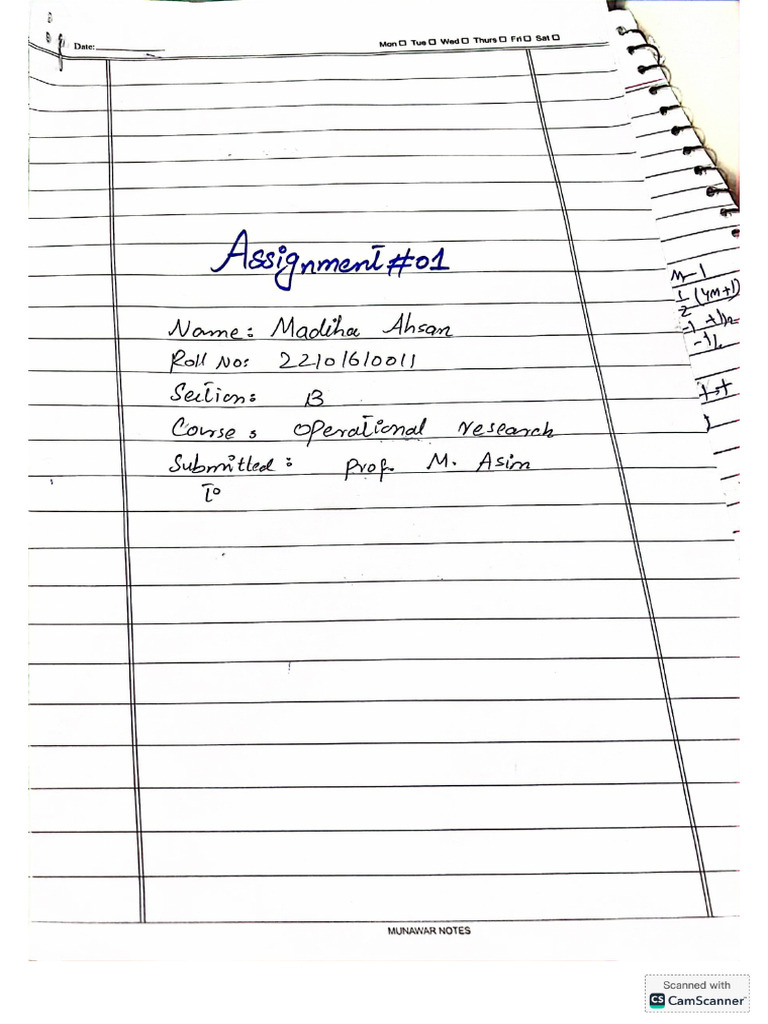 Date:
Mon Tue Wed Thurs Fri Sat
Assignment #01
Name: Madiha Ahsan
Roll No: 22101610011
Section: B
Course: Operational research
Submitted: Prof. M. Asim
To
M-1
1/2 (4M+1)
MUNAWAR NOTES
Scanned with
CS CamScanner